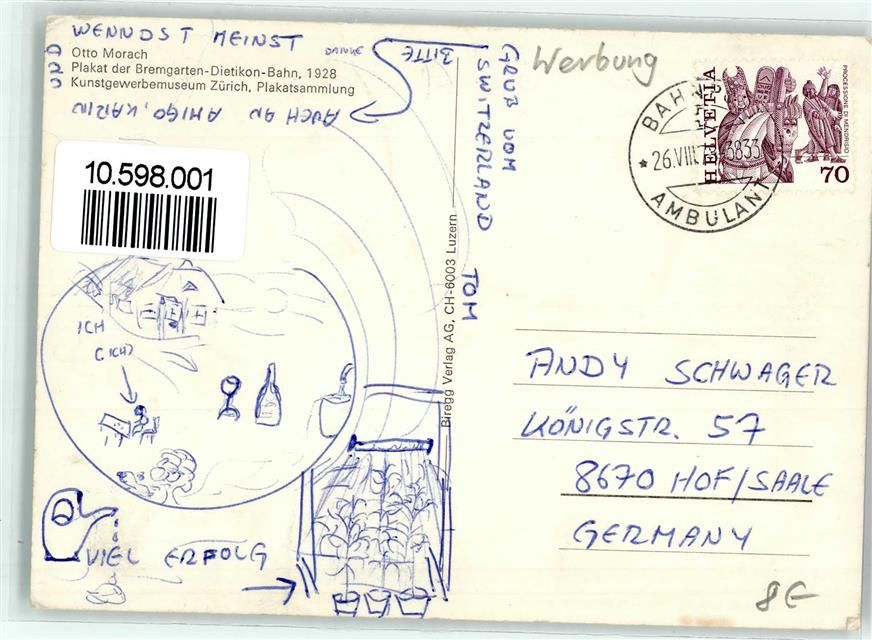 WENNDST MEINST
DANKE
BITTE
Otto Morach
Plakat der Bremgarten-Dietikon-Bahn, 1928
Kunstgewerbemuseum Zürich, Plakatsammlung
AUCH AN AMIGO, KARIN
10.598.001
ICH
(ICH)
VIEL ERFOLG
Biregg Verlag AG, CH-6003 Luzern
GRUß VOM
SWITZERLAND TOM
Werbung
BAHN
26.VIII.
3833
AMBULANT
HELVETIA
PROCESSIONE DI MENDRISIO
70
ANDY SCHWAGER
KÖNIGSTR. 57
8670 HOF/SAALE
GERMANY
8€